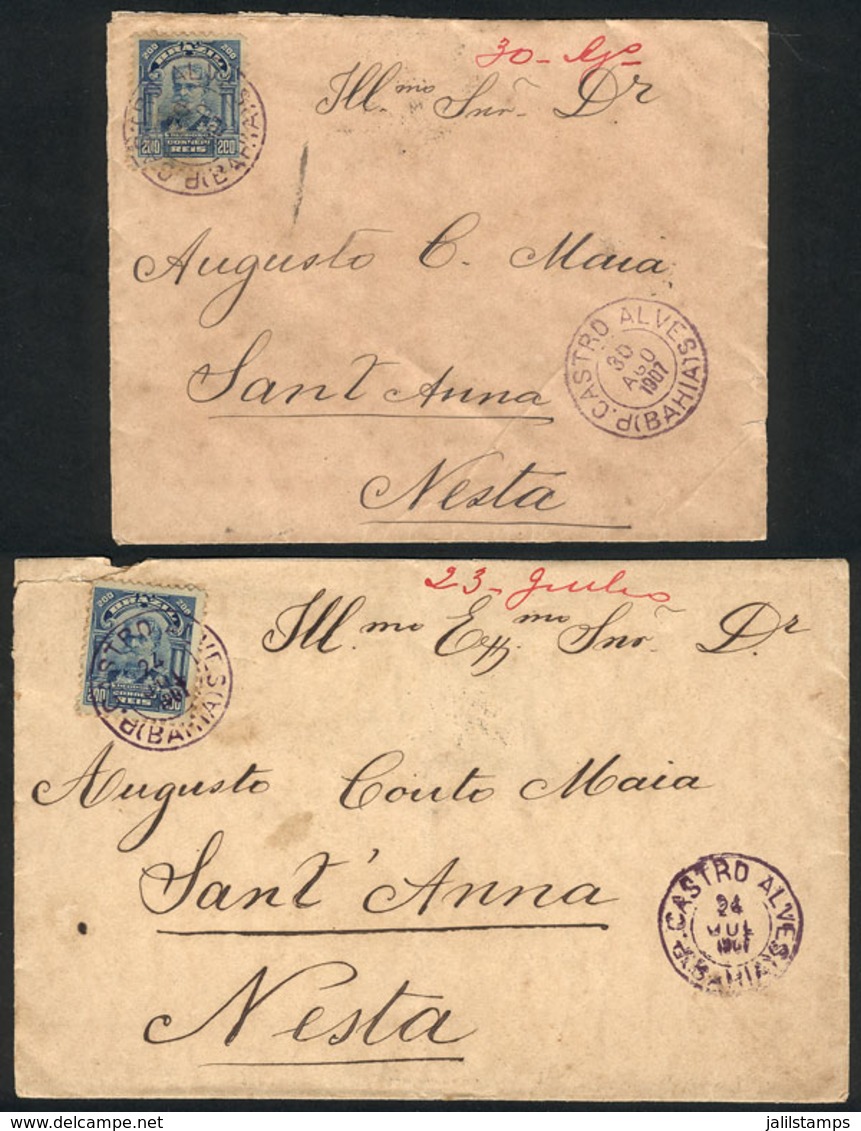 30 - Ago
200 BRAZIL 200
Ill.mo Snr. Dr
200 REIS 200
P. CASTRO ALVES (BAHIA)
Augusto C. Maia
P. CASTRO ALVES (BAHIA)
30
AGO
1907
Sant'Anna
Nesta
23 - Julho
200 BRAZIL 200
Ill.mo Exmo Snr. Dr
CASTRO ALVES (BAHIA)
24
200 REIS
Augusto Couto Maia
P. CASTRO ALVES (BAHIA)
24
JUL
Sant'Anna
Nesta
jalilstamps